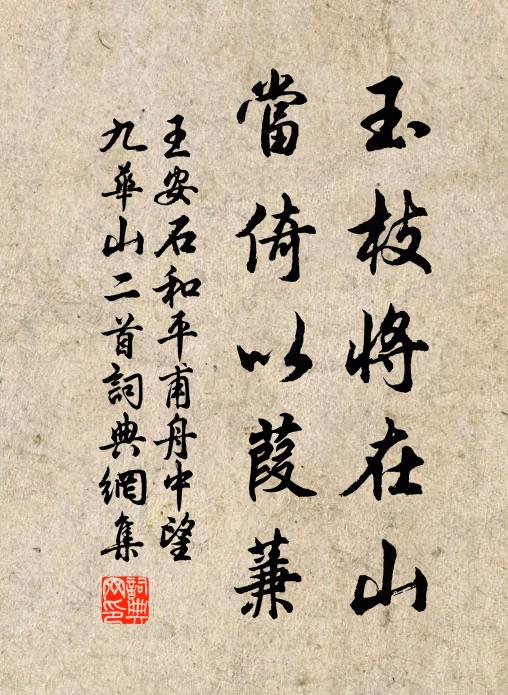 玉枝將在山
當倚以葭蒹
王安石和平甫舟中望
九華山二首詞典網集
詞典
网印